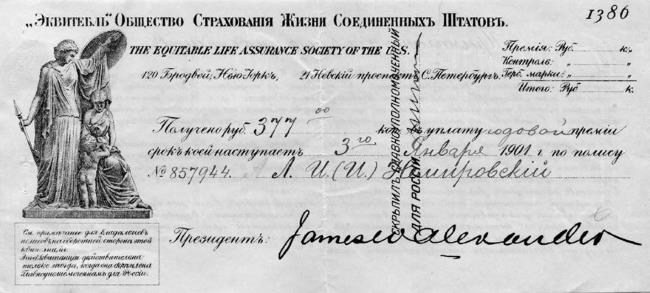 „Эквитебль" Общество Страхованія Жизни Соединенныхъ Штатовъ.
1386
THE EQUITABLE LIFE ASSURANCE SOCIETY OF THE U.S.
120 Бродвей, Нью Іоркъ,
21 Невскій проспектъ С. Петербургъ.
Премія: Руб. к.
Контроль: „ „
Герб. марки: „ „
Итого: Руб к.
Получено руб. 377 00 коп. въ уплату годовой преміи
срокъ коей наступаетъ 3го Января 1901 г. по полису
№ 857944. А. Л. И. (И.) Немировскій
СКРѢПИЛЪ ГЛАВНОУПОЛНОМОЧЕННЫЙ
ДЛЯ РОССІИ
Президентъ: James W Alexander
См. примѣчаніе для владѣльцевъ
полисовъ на оборотной сторонѣ этой
квитанціи.
Эта квитанція дѣйствительна
только тогда, когда она скрѣплена
Главноуполномоченнымъ для Россіи.